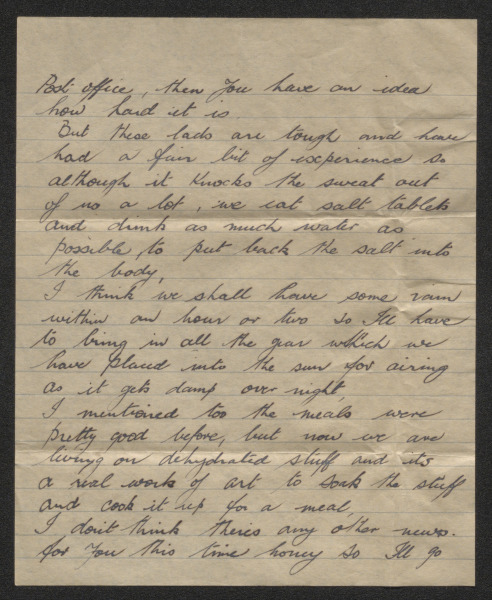 Post office, then you have an idea
how hard it is.
But these lads are tough and have
had a fair bit of experience so
although it knocks the sweat out
of us a lot, we eat salt tablets
and drink as much water as
possible, to put back the salt into
the body,
I think we shall have some rain
within an hour or two so I'll have
to bring in all the gear which we
have placed into the sun for airing
as it gets damp over night,
I mentioned too the meals were
pretty good before, but now we are
living on dehydrated stuff and its
a real work of art to soak the stuff
and cook it up for a meal,
I don't think theres any other news.
for you this time honey so I'll go